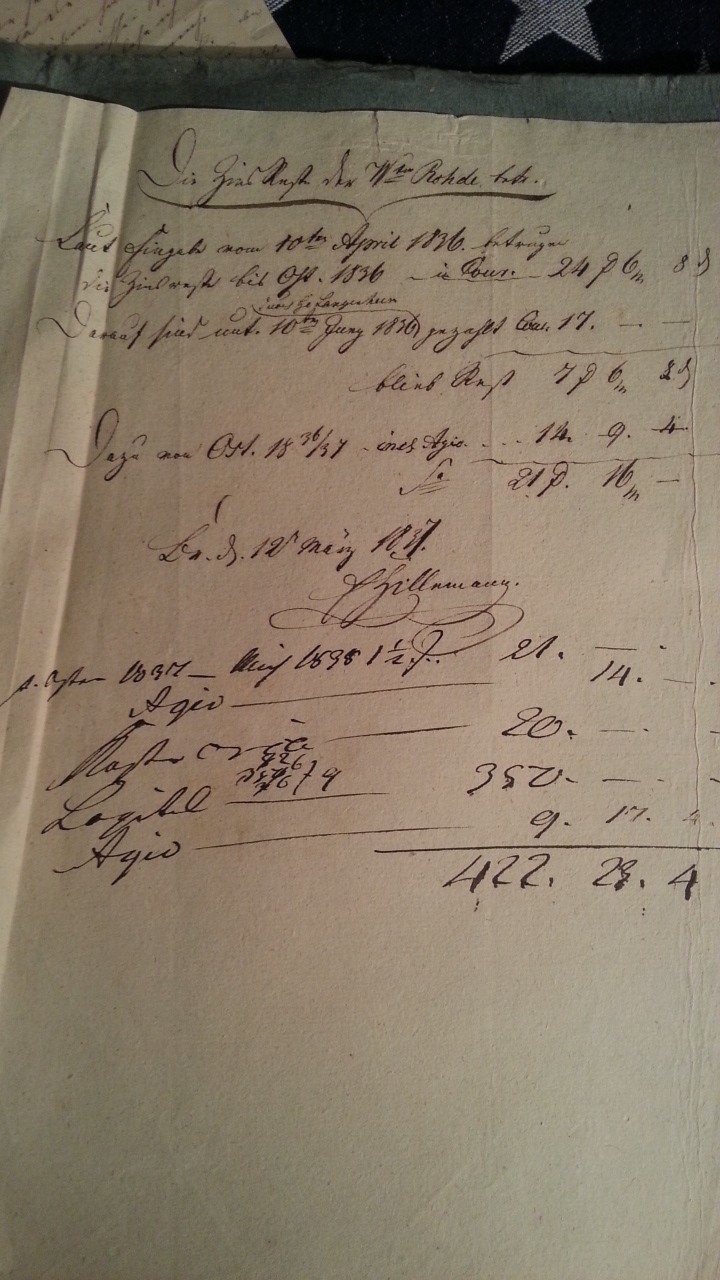 Die Zins Reste der Wtwe Rohde betr.
Laut Eingabe vom 10ten April 1836. betrugen
die Zinsreste bis Ost. 1836 in Cour. 24 8
Darauf sind unt. 10ten Juny 1836 gezahlt Cour. 17. — —
blieb Rest 7 6 8
Dazu von Ost. 18 36/37 incl. Agio. 14. 9. 4
Sa 21 16 —
Br. d. 12t März 1837.
Hillemann.
1837 — 1838 1 1/2 J. 21. — .
Agio — 14. — .
Kosten — 20. — .
Capital — 350. — —
Agio — 9. 17. 4
422. 28. 4